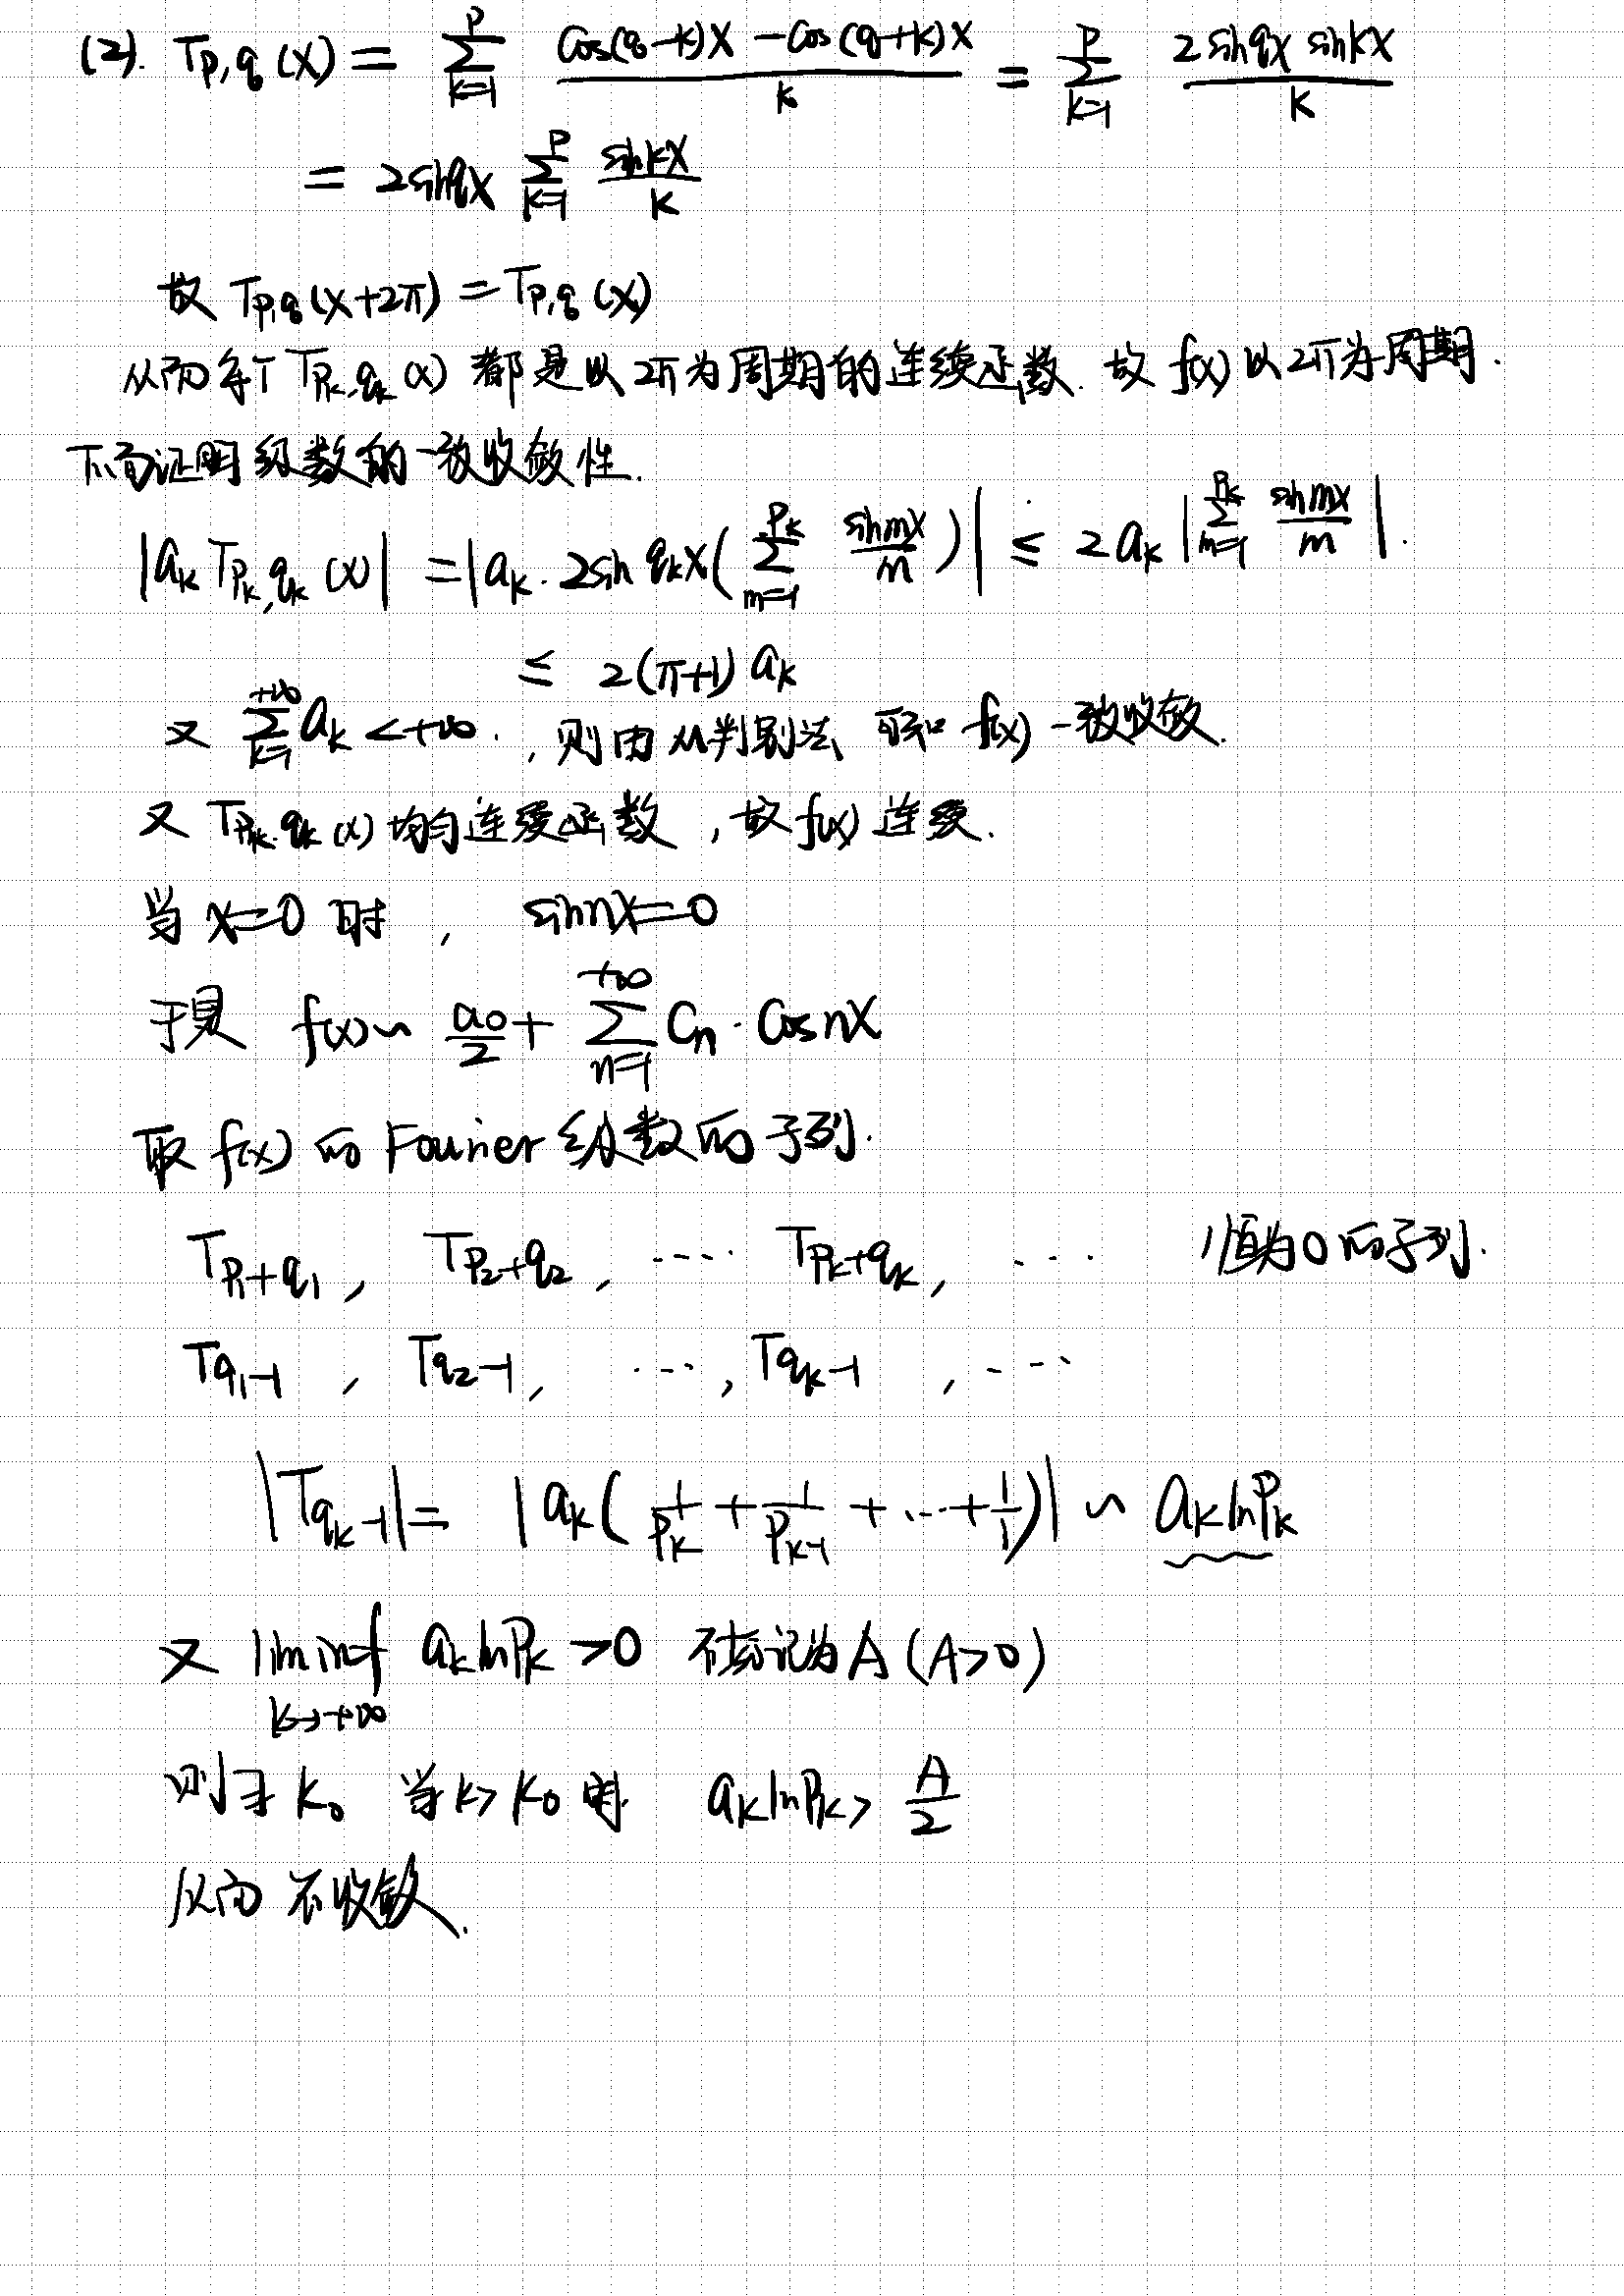 (2). T_{p,q}(x) = \sum_{k=1}^{p} \frac{\cos(q-k)x - \cos(q+k)x}{k} = \sum_{k=1}^{p} \frac{2\sin qx \sin kx}{k}
= 2\sin qx \sum_{k=1}^{p} \frac{\sin kx}{k}
故 T_{p,q}(x+2π) = T_{p,q}(x)
从而每个 T_{p_k,q_k}(x) 都是以 2π 为周期的连续函数. 故 f(x) 以 2π 为周期.
下面证明级数的一致收敛性.
|a_k T_{p_k,q_k}(x)| = |a_k \cdot 2\sin q_k x (\sum_{m=1}^{p_k} \frac{\sin mx}{m})| ≤ 2a_k |\sum_{m=1}^{p_k} \frac{\sin mx}{m}|.
≤ 2(π+1) a_k
又 \sum_{k=1}^{+∞} a_k < +∞. , 则由 M判别法 可知 f(x) 一致收敛.
又 T_{p_k,q_k}(x) 均为连续函数 , 故 f(x) 连续.
当 x=0 时 , sin nx = 0
于是 f(x) ~ \frac{a_0}{2} + \sum_{n=1}^{+∞} C_n \cdot \cos nx
取 f(x) 的 Fourier 级数的子列.
T_{p_1+q_1} , T_{p_2+q_2} , ⋯ T_{p_k+q_k} , ⋯ 值为0的子列.
T_{q_1-1} , T_{q_2-1} , ⋯ , T_{q_k-1} , ⋯
|T_{q_k-1}| = |a_k(\frac{1}{p_k} + \frac{1}{p_{k-1}} + ⋯ + \frac{1}{1})| ~ a_k ln p_k
又 \liminf_{k→+∞} a_k ln p_k > 0 不妨记为 A (A>0)
则 ∃ k_0 当 k > k_0 时 a_k ln p_k > \frac{A}{2}
从而 不收敛.